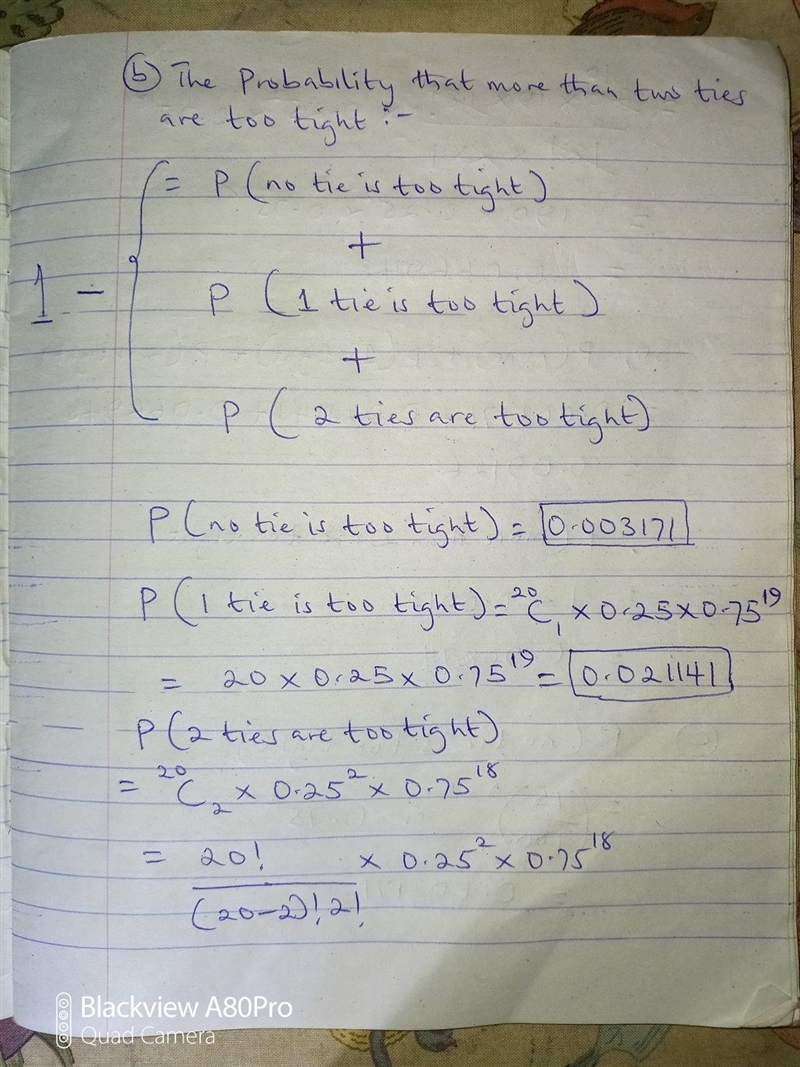 (b) The Probability that more than two ties
are too tight :-
= P (no tie is too tight)
+
1 - P (1 tie is too tight)
+
P (2 ties are too tight)
P (no tie is too tight) = 0.003171
P (1 tie is too tight) = ²⁰C₁ × 0.25 × 0.75¹⁹
= 20 × 0.25 × 0.75¹⁹ = 0.021141
P (2 ties are too tight)
= ²⁰C₂ × 0.25² × 0.75¹⁸
= 20! × 0.25² × 0.75¹⁸
(20-2)! 2!
Blackview A80Pro
Quad Camera